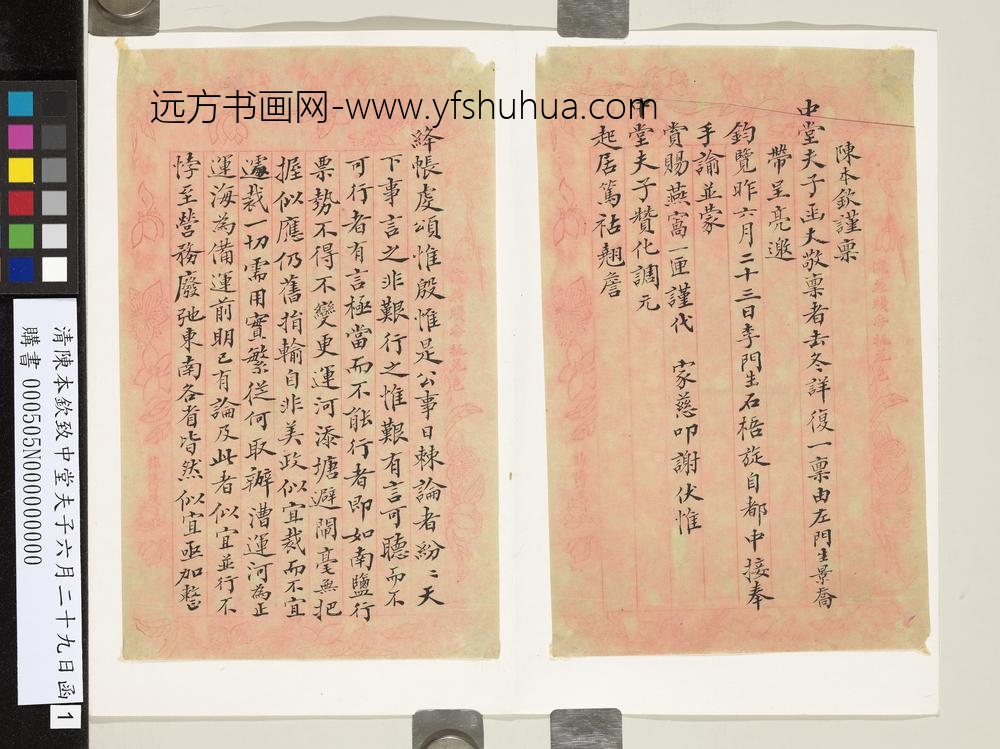 远方书画网-www.yfshuhua.com
陳本欽謹稟
中堂夫子函丈敬稟者去冬詳復一稟由左門生景喬
帶呈亮邀
鈞覽昨六月二十三日李門生石梧旋自都中接奉
手諭並蒙
賞賜燕窩一匣謹代 家慈叩謝伏惟
中堂夫子贊化調元
起居篤祜翹詹
絳帳虔頌惟殷惟是公事日棘論者紛〻天
下事言之非艱行之惟艱有言可聽而不
可行者有言極當而不能行者即如南鹽行
票勢不得不變更運河添塘避閘毫無把
握似應仍舊捐輸自非美政似宜裁而不宜
遽裁一切需用實繁從何取辦漕運河為正
運海為備運前明已有論及此者似宜並行不
悖至營務廢弛東南各省皆然似宜亟加整
清陳本欽致中堂夫子六月二十九日函
購書 000505N000000000
1